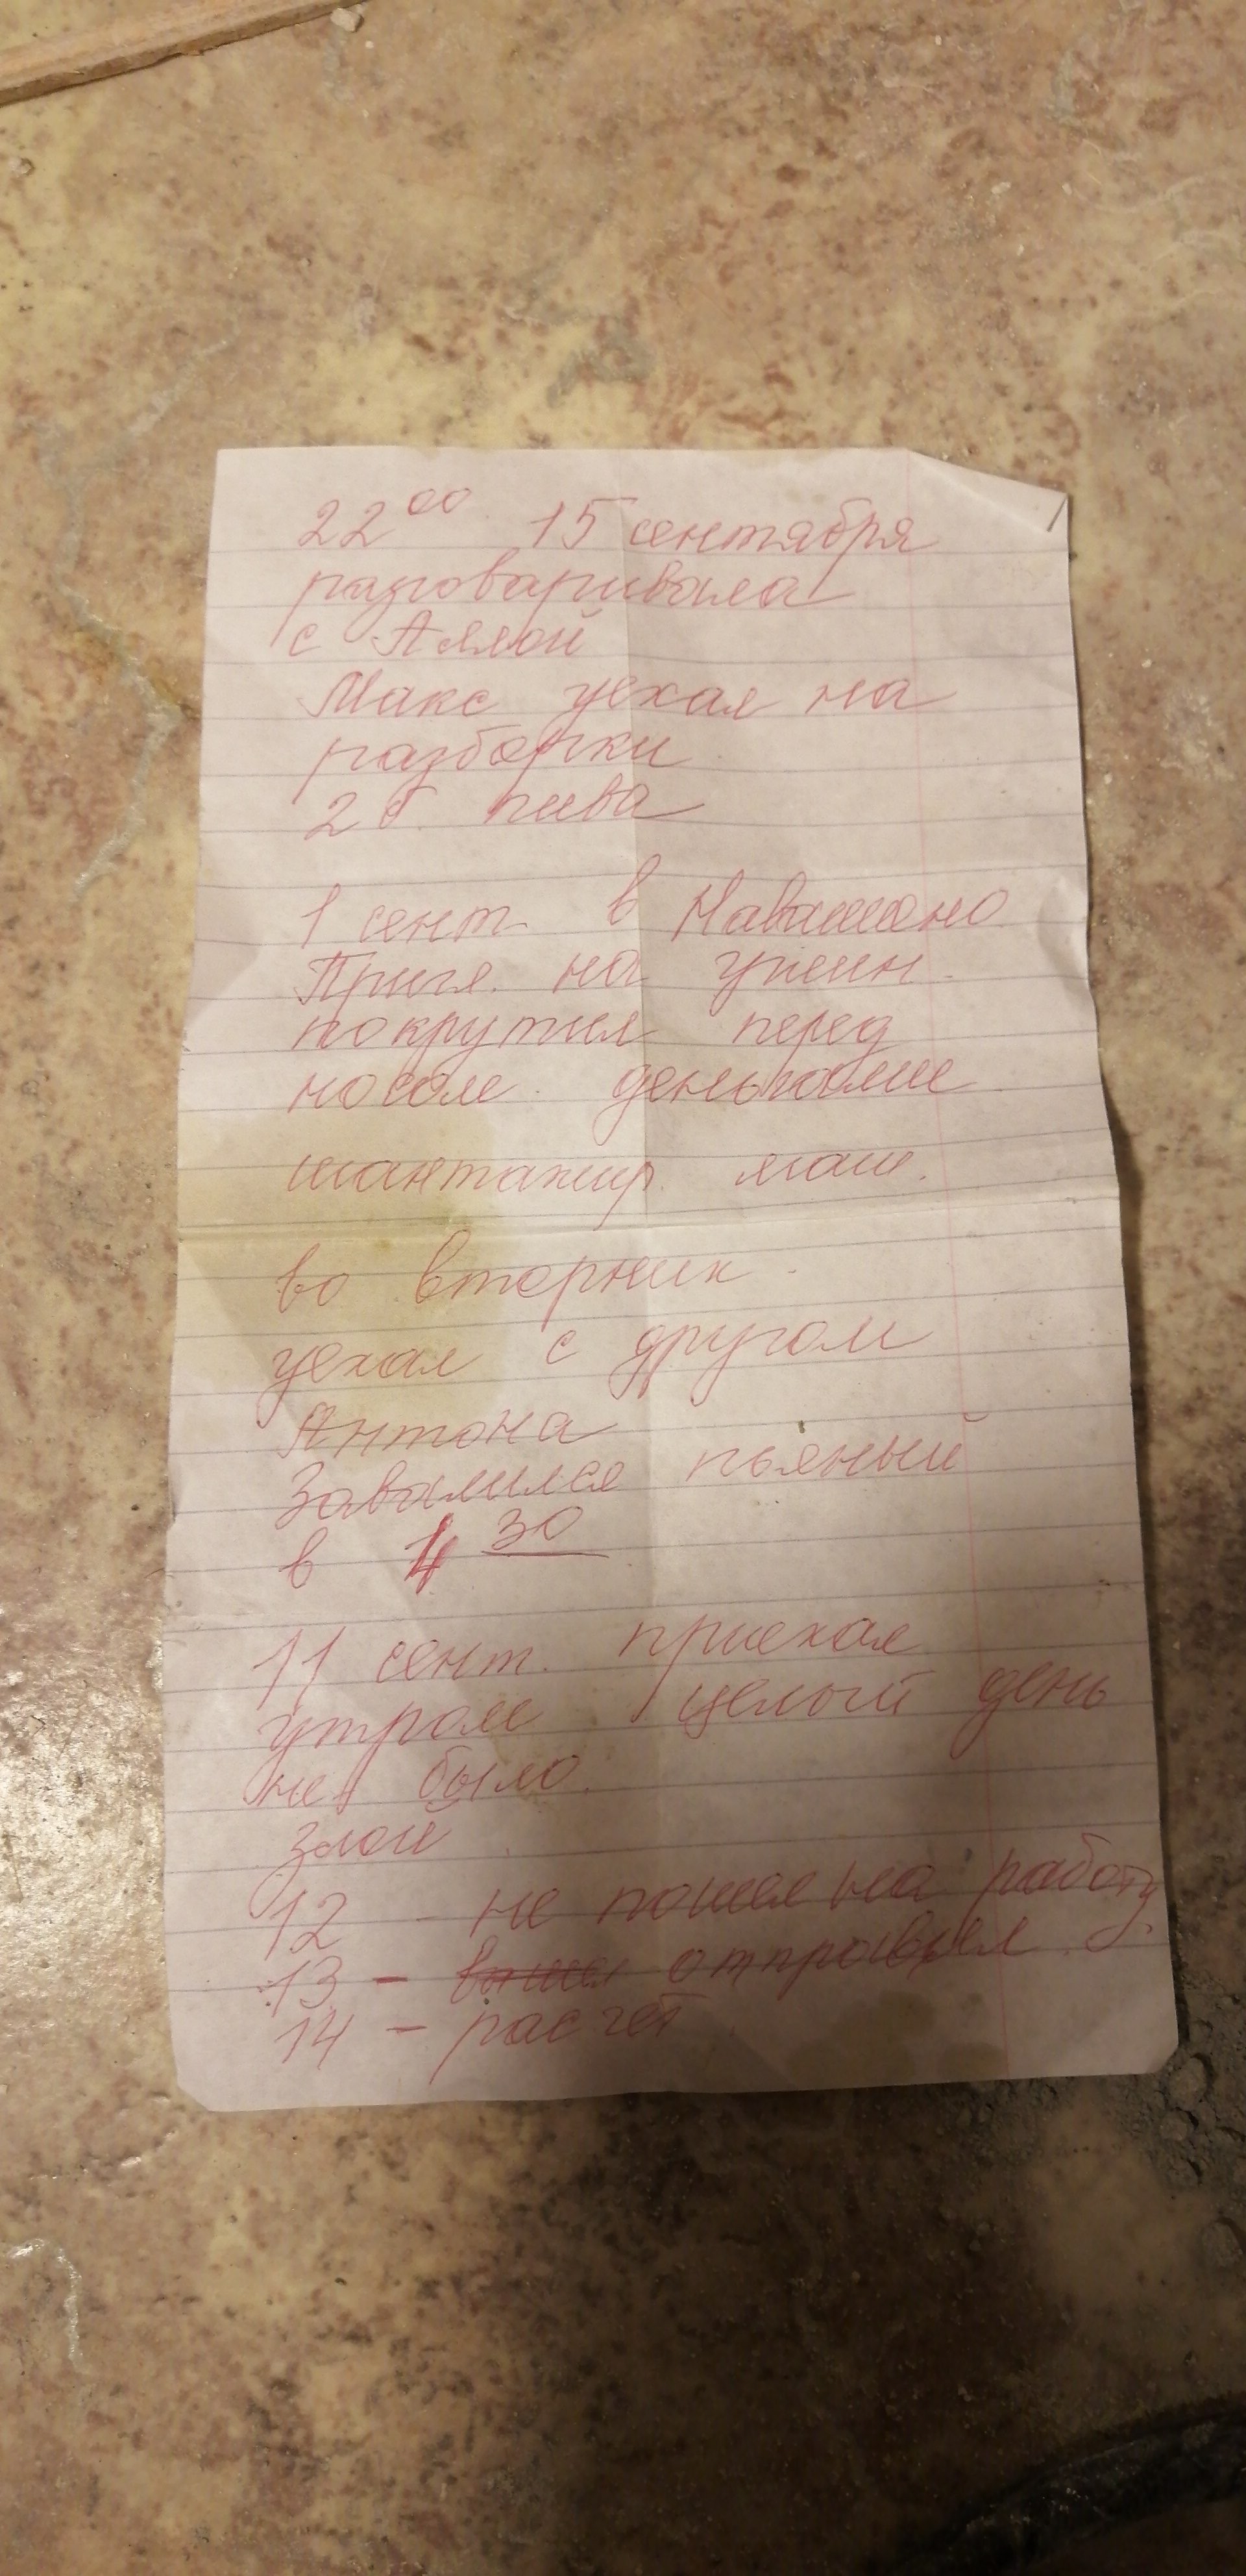 22⁰⁰ 15 сентября
разговаривала
с Аллой
Макс уехал на
разборки
2 б. пива
1 сент. в
Пригл. на ужин.
покрутил перед
носом деньгами
шантажир. маш.
во вторник.
уехал с другом
Антона
Завалился пьяный
в 4 30
11 сент. приехал
утром целый день
не было.
злой
12 - не пошел на работу.
13 - вышел отправил
14 - расчет